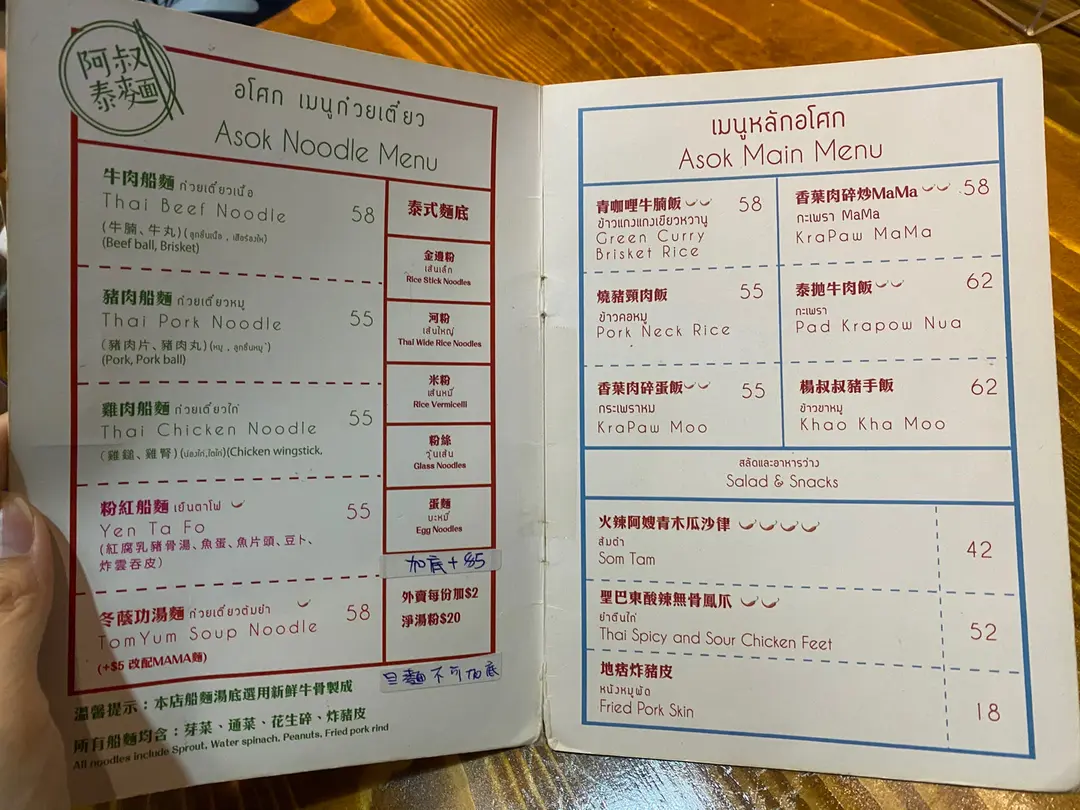 阿叔
泰麵
อโศก เมนูก๋วยเตี๋ยว
Asok Noodle Menu
牛肉船麵 ก๋วยเตี๋ยวเนื้อ
Thai Beef Noodle 58
(牛腩、牛丸) (ลูกชิ้นเนื้อ , เสือร้องไห้)
(Beef ball, Brisket)
豬肉船麵 ก๋วยเตี๋ยวหมู
Thai Pork Noodle 55
(豬肉片、豬肉丸) (หมู , ลูกชิ้นหมู)
(Pork, Pork ball)
雞肉船麵 ก๋วยเตี๋ยวไก่
Thai Chicken Noodle 55
(雞鎚、雞腎) (น่องไก่,ไตไก่) (Chicken wingstick,
粉紅船麵 เย็นตาโฟ
Yen Ta Fo 55
(紅腐乳豬骨湯、魚蛋、魚片頭、豆卜、
炸雲吞皮)
冬蔭功湯麵 ก๋วยเตี๋ยวต้มยำ
TomYum Soup Noodle 58
(+$5 改配MAMA麵)
泰式麵底
金邊粉
เส้นเล็ก
Rice Stick Noodles
河粉
เส้นใหญ่
Thai Wide Rice Noodles
米粉
เส้นหมี่
Rice Vermicelli
粉絲
วุ้นเส้น
Glass Noodles
蛋麵
บะหมี่
Egg Noodles
加底+$5
外賣每份加$2
淨湯粉$20
旦麵不可加底
溫馨提示：本店船麵湯底選用新鮮牛骨製成
所有船麵均含：芽菜、通菜、花生碎、炸豬皮
All noodles include Sprout, Water spinach, Peanuts, Fried pork rind
เมนูหลักอโศก
Asok Main Menu
青咖哩牛腩飯 58
ข้าวแกงแกงเขียวหวานู
Green Curry
Brisket Rice
燒豬頸肉飯 55
ข้าวคอหมู
Pork Neck Rice
香葉肉碎蛋飯 55
กระเพราหม
KraPaw Moo
香葉肉碎炒MaMa 58
กะเพรา MaMa
KraPaw MaMa
泰拋牛肉飯 62
กะเพรา
Pad Krapow Nua
楊叔叔豬手飯 62
ข้าวขาหมู
Khao Kha Moo
สลัดและอาหารว่าง
Salad & Snacks
火辣阿嫂青木瓜沙律
ส้มตำ 42
Som Tam
聖巴東酸辣無骨鳳爪
ยำตีนไก่ 52
Thai Spicy and Sour Chicken Feet
地痞炸豬皮
หนังหมูผัด 18
Fried Pork Skin